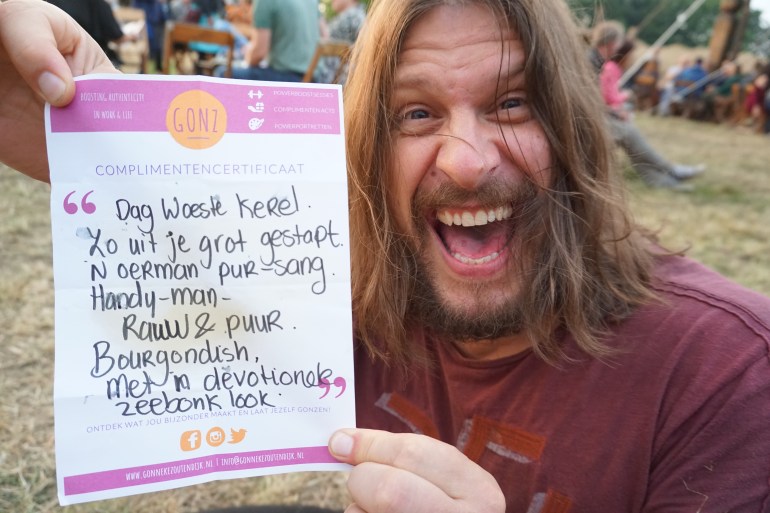 BOOSTING AUTHENTICITY
IN WORK & LIFE
GONZ
COMPLIMENTENCERTIFICAAT
“ Dag Woeste Kerel.
Zo uit je grot gestapt.
'N oerman pur-sang.
Handy-man-
Rauw & puur.
Bourgondish,
met 'n devotionele
zeebonk look. ”
ONTDEK WAT JOU BIJZONDER MAAKT EN LAAT JEZELF GONZEN!
WWW.GONNEKEZOUTENDIJK.NL | INFO@GONNEKEZOUTENDIJK.NL